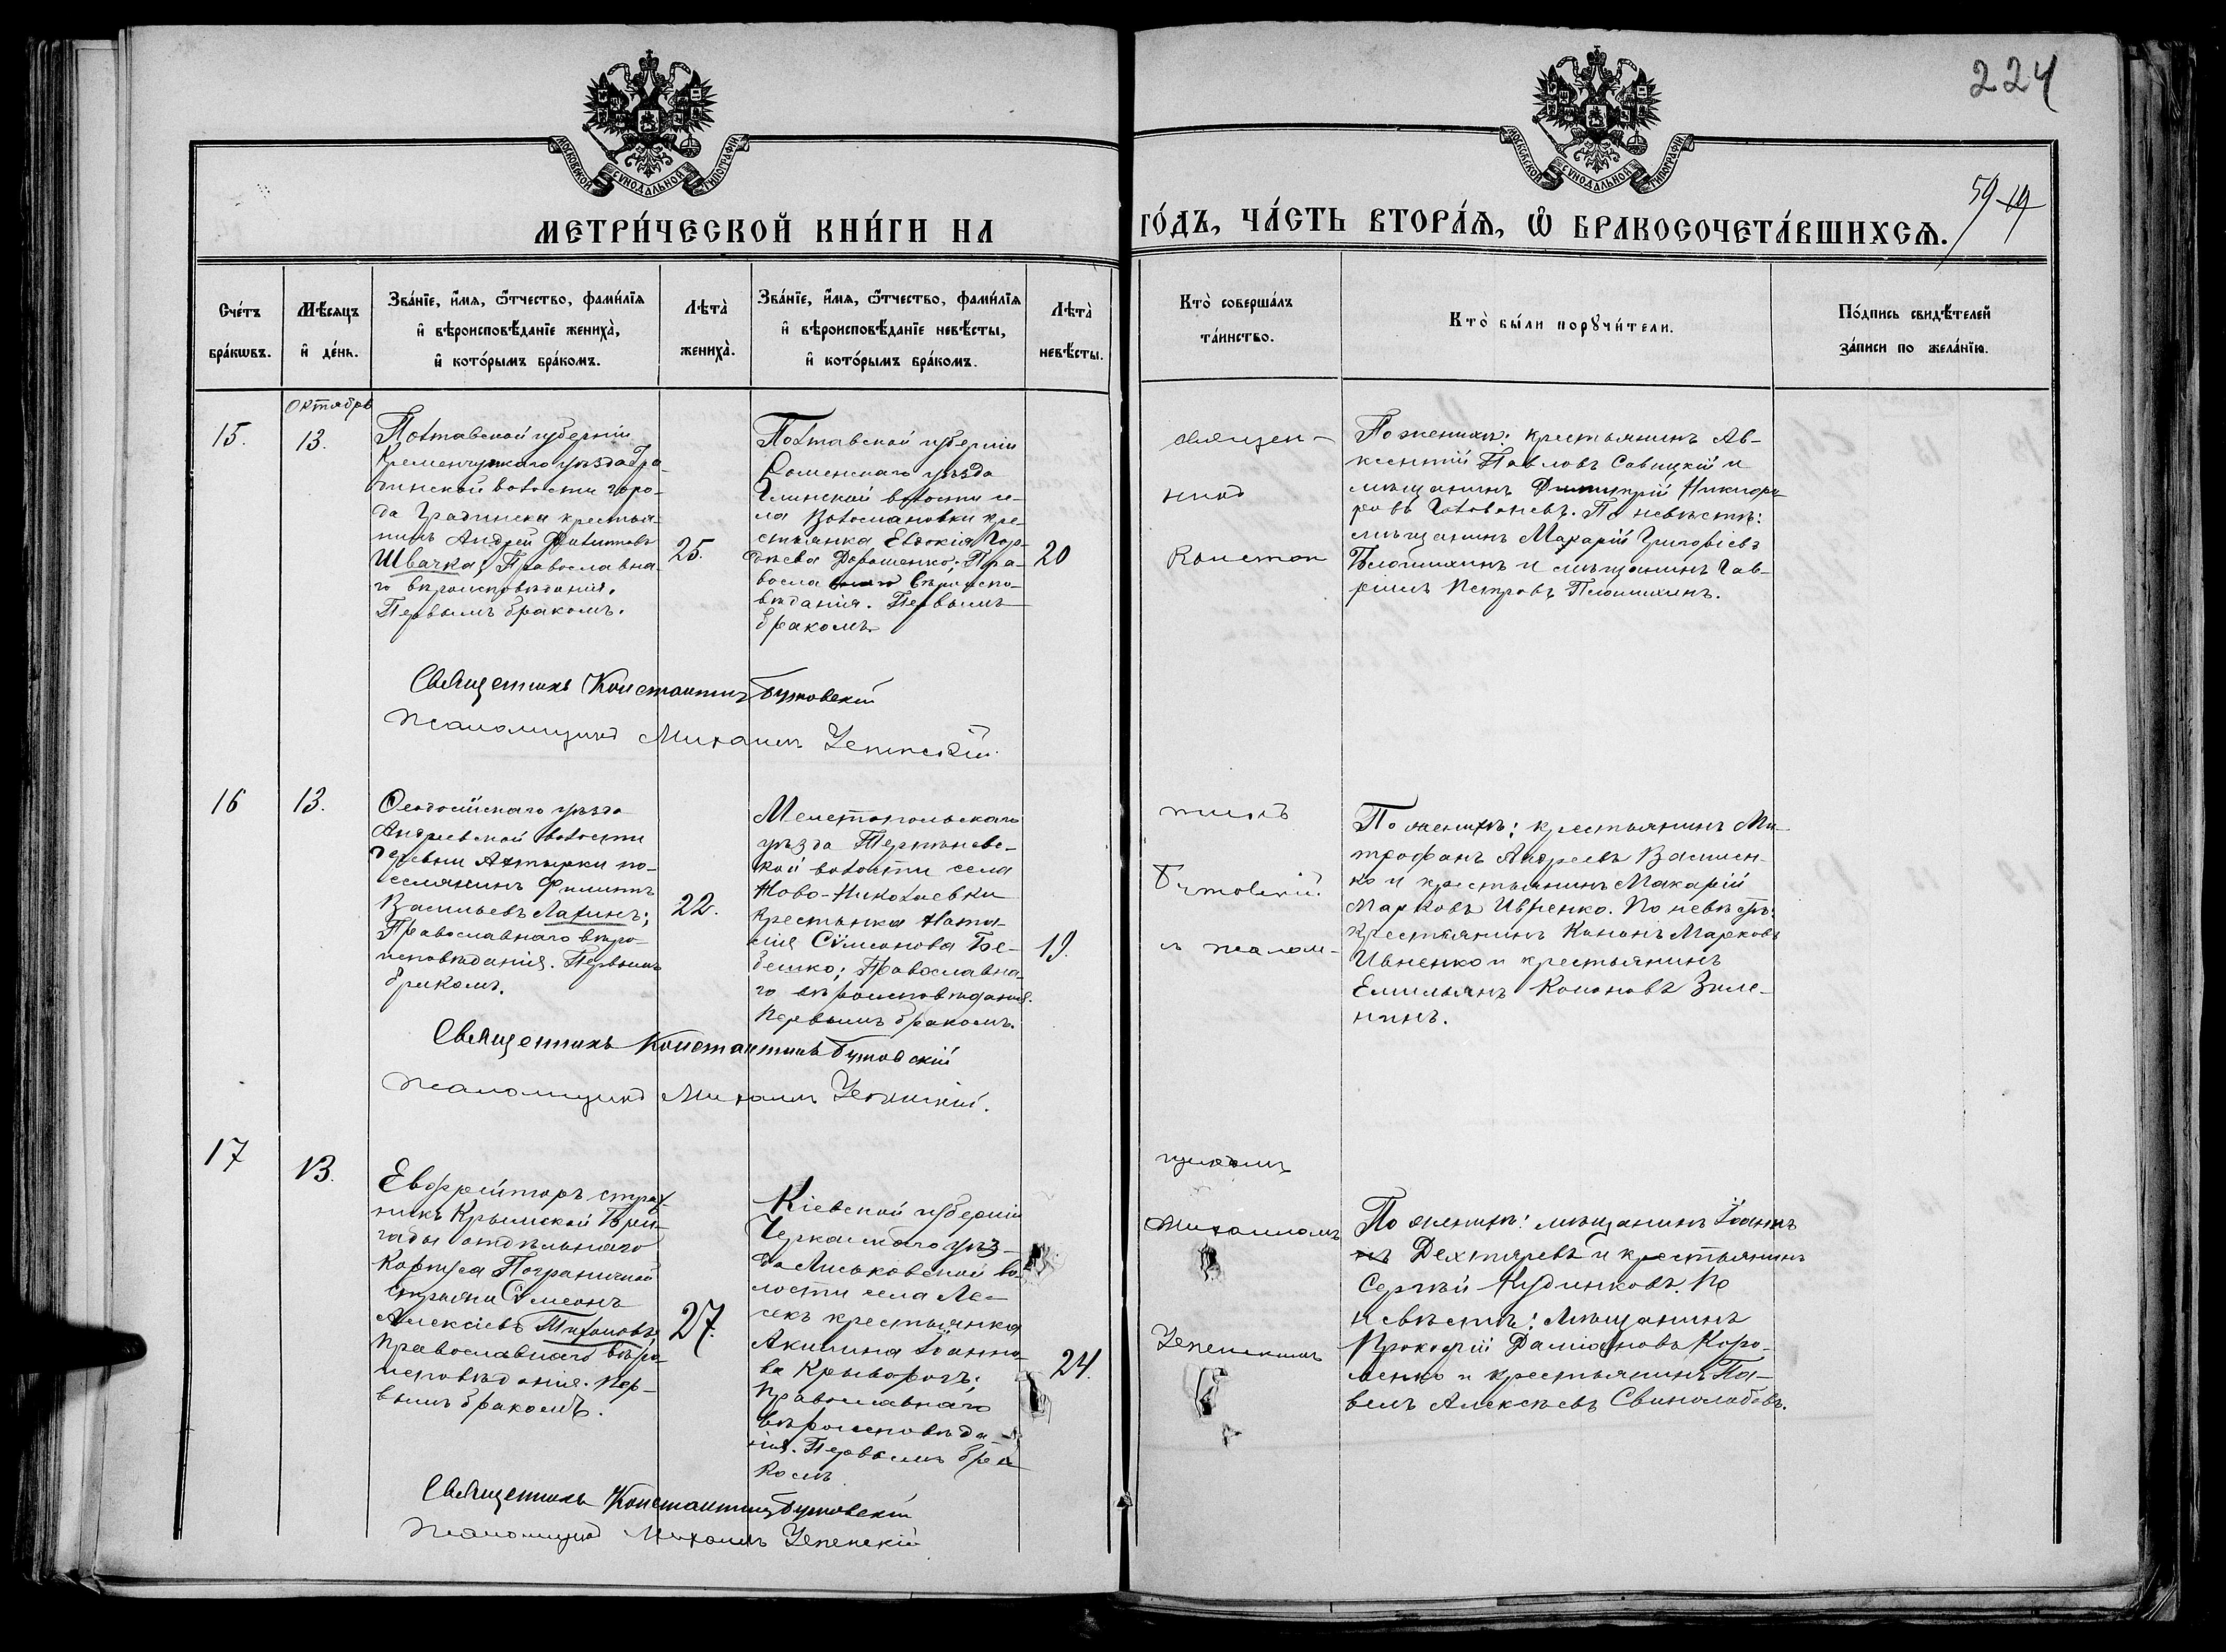 224
59
МОСКОВСКОЙ СѴНОДАЛЬНОЙ ТИПОГРАФІИ
МОСКОВСКОЙ СѴНОДАЛЬНОЙ ТИПОГРАФІИ
МЕТРИ́ЧЕСКОЙ КНИ́ГИ НА
ГО́ДЪ, ЧА́СТЬ ВТОРА́Ѧ, Ѿ БРАКОСОЧЕТА́ВШИХСѦ.
Сче́тъ
бра́кѡвъ.
Мѣ́сяцъ
и҆ де́нь.
Зва́нїе, и҆́мѧ, ѻ҆́тчество, фами́лїѧ
и҆ вѣроисповѣ́данїе жениха̀,
и҆ кото́рымъ бра́комъ.
Лѣта̀
жениха̀.
Зва́нїе, и҆́мѧ, ѻ҆́тчество, фами́лїѧ
и҆ вѣроисповѣ́данїе невѣ́сты,
и҆ кото́рымъ бра́комъ.
Лѣта̀
невѣ́сты.
Кто̀ соверша́лъ
та́инство.
Кто̀ бы́ли порꙋчи́тели.
По́дпись свидѣ́телей
за́писи по жела́нїю.
15.
Октября
13.
Полтавской губерніи
Кременчугскаго уѣзда Гра-
динской волости горо-
да Градинска крестья-
нинъ Андрей Филиповъ
Швачка; Православна
го вѣроисповѣданія.
Первымъ бракомъ.
25.
Полтавской губерніи
Роменскаго уѣзда
Глинской волости се-
ла Волошановки кре-
стьянка Евдокія Гор-
дѣева Дорошенко; Пра-
вославнаго вѣроиспо-
вѣданія. Первымъ
бракомъ
20
Священ-
никъ
Констан
По женихѣ: крестьянинъ Ав-
ксентій Павловъ Савицкій и
мѣщанинъ Димитрій Никифо-
ровъ Головневъ. По невѣстѣ:
мѣщанинъ Макарій Григоріевъ
и мѣщанинъ Гав-
ріилъ Петровъ Плотихинъ.
Священникъ Константинъ Бутовскій
Псаломщикъ Михаилъ Успенскій
16
13.
Ѳеодосійскаго уѣзда
Андреевской волости
деревни Ахтырки по-
селянинъ Филиппъ
Васильевъ Лахинъ;
Православнаго вѣро-
исповѣданія. Первымъ
бракомъ.
22.
Мелитопольскаго
уѣзда Терпѣнев-
кой волости села
Ново-Николаевки
крестьянка Ната-
лія Сѵмеонова Бе-
бешко; Православна-
го вѣроисповѣданія.
Первымъ бракомъ.
19.
тинъ
Бутовскій
съ псалом-
По женихѣ: крестьянинъ Ми-
трофанъ Андреевъ Василен-
ко и крестьянинъ Макарій
Марковъ Ивненко. По невѣстѣ:
крестьянинъ Кононъ Марковъ
Ивненко и крестьянинъ
Емильянъ Кононовъ Зиле-
нинъ.
Священникъ Константинъ Бутовскій
Псаломщикъ Михаилъ Успенскій.
17
13.
Евфрейторъ страж
никъ Крымской Бри-
гады отдѣльнаго
Корпуса Пограничной
стражи Сѵмеонъ
Алексіевъ Тихоновъ;
Православнаго вѣро-
исповѣданія. Пер-
вымъ бракомъ.
27.
Кіевской губерніи
Черкаскаго уѣз-
да Лиськовской во-
лости села Ле-
секъ крестьянка
Акилина Іоанно-
ва Криворогъ;
Православнаго
вѣроисповѣда
нія. Первымъ бра
комъ
24.
щикомъ
Михаиломъ
Успенскимъ
По женихѣ: мѣщанинъ Іоаннъ
Дехтяревъ и крестьянинъ
Сергѣй Кудинковъ. По
невѣстѣ: мѣщанинъ
Прокофій Даміановъ Коро-
ленко и крестьянинъ Па-
велъ Алексѣевъ Свинолобовъ.
Священникъ Константинъ Бутовскій
Псаломщикъ Михаилъ Успенскій